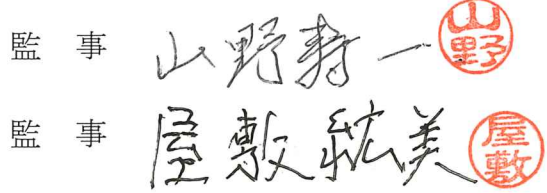 監 事 山野寿一 山野
監 事 屋敷紘美 屋敷